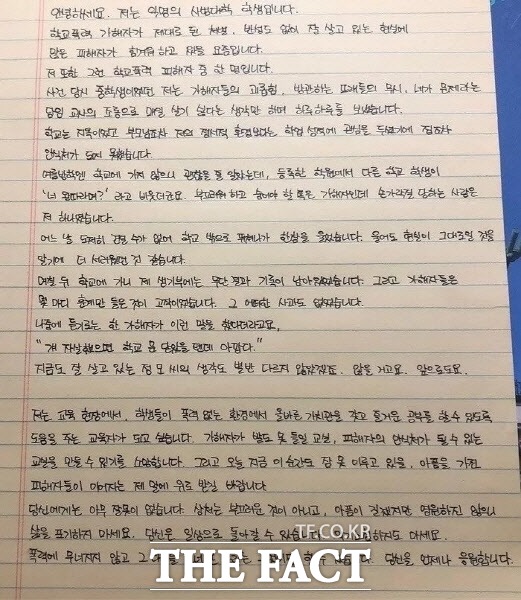 안녕하세요. 저는 익명의 사범대학 학생입니다.
학교폭력 가해자가 제대로 된 처벌, 반성도 없이 잘 살고 있는 현실에
많은 피해자가 힘겨워 하고 있을 요즘입니다.
저 또한 그런 학교폭력 피해자 중 한 명입니다.
사건 당시 중학생이었던 저는 가해자들의 괴롭힘, 방관하는 또래들의 무시, 네가 문제라는
담임 교사의 조롱으로 매일 살기 싫다는 생각만 하며 하루하루를 보냈습니다.
학교는 지옥이었고 부모님조차 저의 정서적 환경보다는 학업 성적에 관심을 두셨기에 집조차
안식처가 되지 못했습니다.
여름방학엔 학교에 가지 않으니 괜찮을 줄 알았는데, 등록한 학원에서 다른 학교 학생이
'너 왕따라며?' 라고 비웃더군요. 부끄러워하고 숨어야 할 쪽은 가해자인데 손가락질 당하는 사람은
저 하나였습니다.
어느 날 도저히 견딜 수가 없어 학교 밖으로 뛰쳐나가 한참을 울었습니다. 울어도 현실이 그대로일 것을
알기에 더 서러웠던 것 같습니다.
며칠 뒤 학교에 가니 제 생기부에는 무단결과 기록이 남아있었습니다. 그리고 가해자들은
몇 마디 훈계만 들은 것이 고작이었습니다. 그 어떠한 사과도 없었습니다.
나중에 듣기로는 한 가해자가 이런 말을 했다더라고요,
"걔 자살했으면 학교 문 닫았을 텐데 아깝다."
지금도 잘 살고 있는 정 모 씨의 생각도 별반 다르지 않았겠죠. 않을 거고요. 앞으로도요.
저는 교육 현장에서, 학생들이 폭력 없는 환경에서 올바른 가치관을 갖고 즐거운 공부를 할 수 있도록
도움을 주는 교육자가 되고 싶습니다. 가해자가 발도 못 들일 교실, 피해자의 안식처가 될 수 있는
교실을 만들 수 있기를 소망합니다. 그리고 오늘 지금 이 순간도 잠 못 이루고 있을, 아픔을 가진
피해자들이 이어지는 제 말에 위로 받길 바랍니다.
당신에게는 아무 잘못이 없습니다. 상처는 부끄러운 것이 아니고, 아픔이 길겠지만 영원하진 않으니
삶을 포기하지 마세요. 당신은 일상으로 돌아갈 수 있습니다. 하지도 마세요.
폭력에 무너지지 않고 그 수 있습니다. 당신을 언제나 응원합니다.
TF.CO.KR
THE FACT